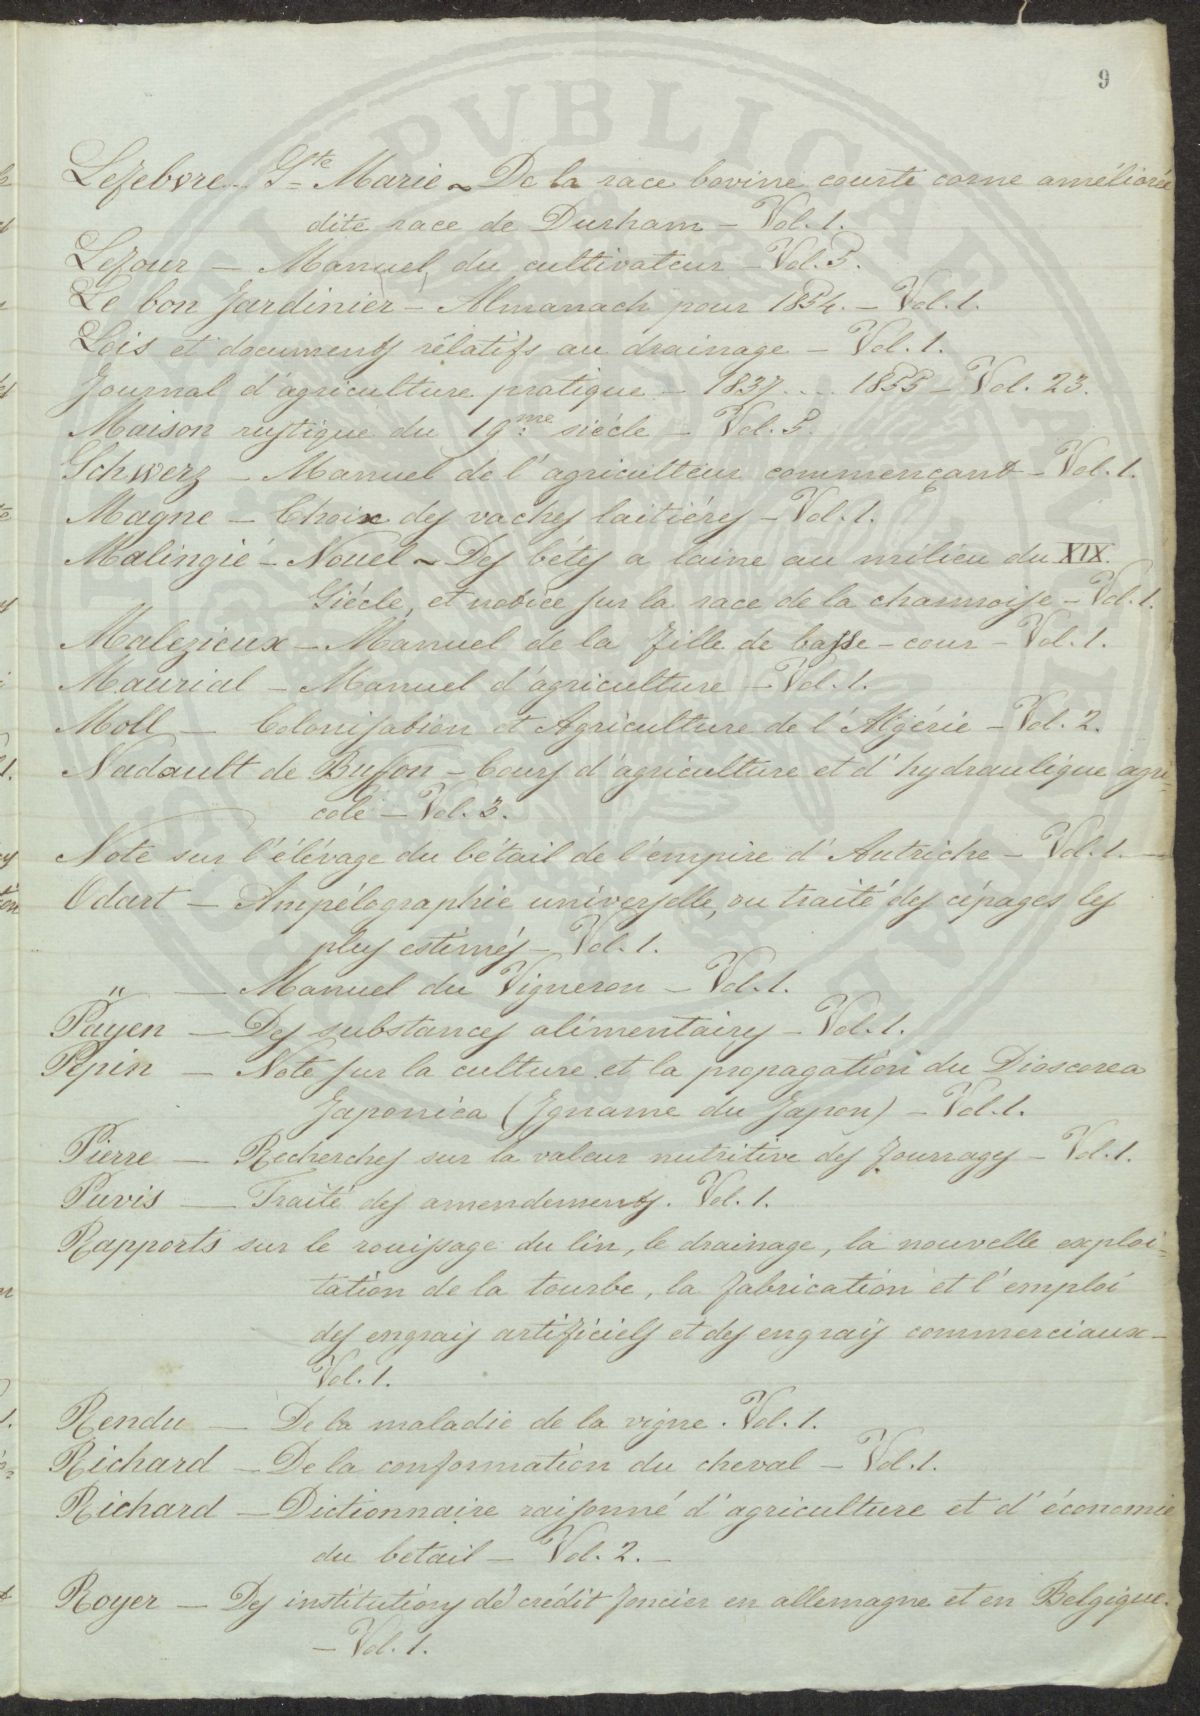 9
Lefebvre S.te Marie ~ De la race bovine courte corne améliorée
dite race de Durham – Vol. 1.
Lefour – Manuel du cultivateur – Vol. 5.
Le bon Jardinier – Almanach pour 1854. – Vol. 1.
Lois et documents rélatifs au drainage – Vol. 1.
Journal d'agriculture pratique – 1837 .... 1855 – Vol. 23.
Maison rustique du 19.me siécle – Vol. 5.
Schwerz – Manuel de l'agriculteur commençant – Vol. 1.
Magne – Choix des vaches laitiéres – Vol. 1.
Malingié – Nouel ~ Des bétes a laine au milieu du XIX.
Siécle, et notice sur la race de la charmoise – Vol. 1.
Malezieux – Manuel de la fille de basse-cour – Vol. 1.
Maurial – Manuel d'agriculture – Vol. 1.
Moll – Colonisation et Agriculture de l'Algérie – Vol. 2.
Nadault de Buffon – Cours d'agriculture et d'hydraulique agri=
cole – Vol. 3.
Note sur l'élévage du bétail de l'empire d'Autriche – Vol. 1. –
Odart – Ampélographie universelle, ou traité des cépages les
plus estimés – Vol. 1.
" – Manuel du Vigneron – Vol. 1.
Payen – Des substances alimentaires – Vol. 1.
Pepin – Note sur la culture et la propagation du Dioscorea
Japonica (Igname du Japon) – Vol. 1.
Pierre – Recherches sur la valeur nutritive des fourrages – Vol. 1.
Puvis – Traité des amendements. Vol. 1.
Rapports sur le rouissage du lin, le drainage, la nouvelle exploi=
tation de la tourbe, la fabrication et l'emploi
des engrais artificiels et des engrais commerciaux –
Vol. 1.
Rendu – De la maladie de la vigne. Vol. 1.
Richard – De la conformation du cheval – Vol. 1.
Richard – Dictionnaire raisonné d'agriculture et d'économie
du betail – Vol. 2. –
Royer – Des institutions de crédit foncier en allemagne et en Belgique.
– Vol. 1.